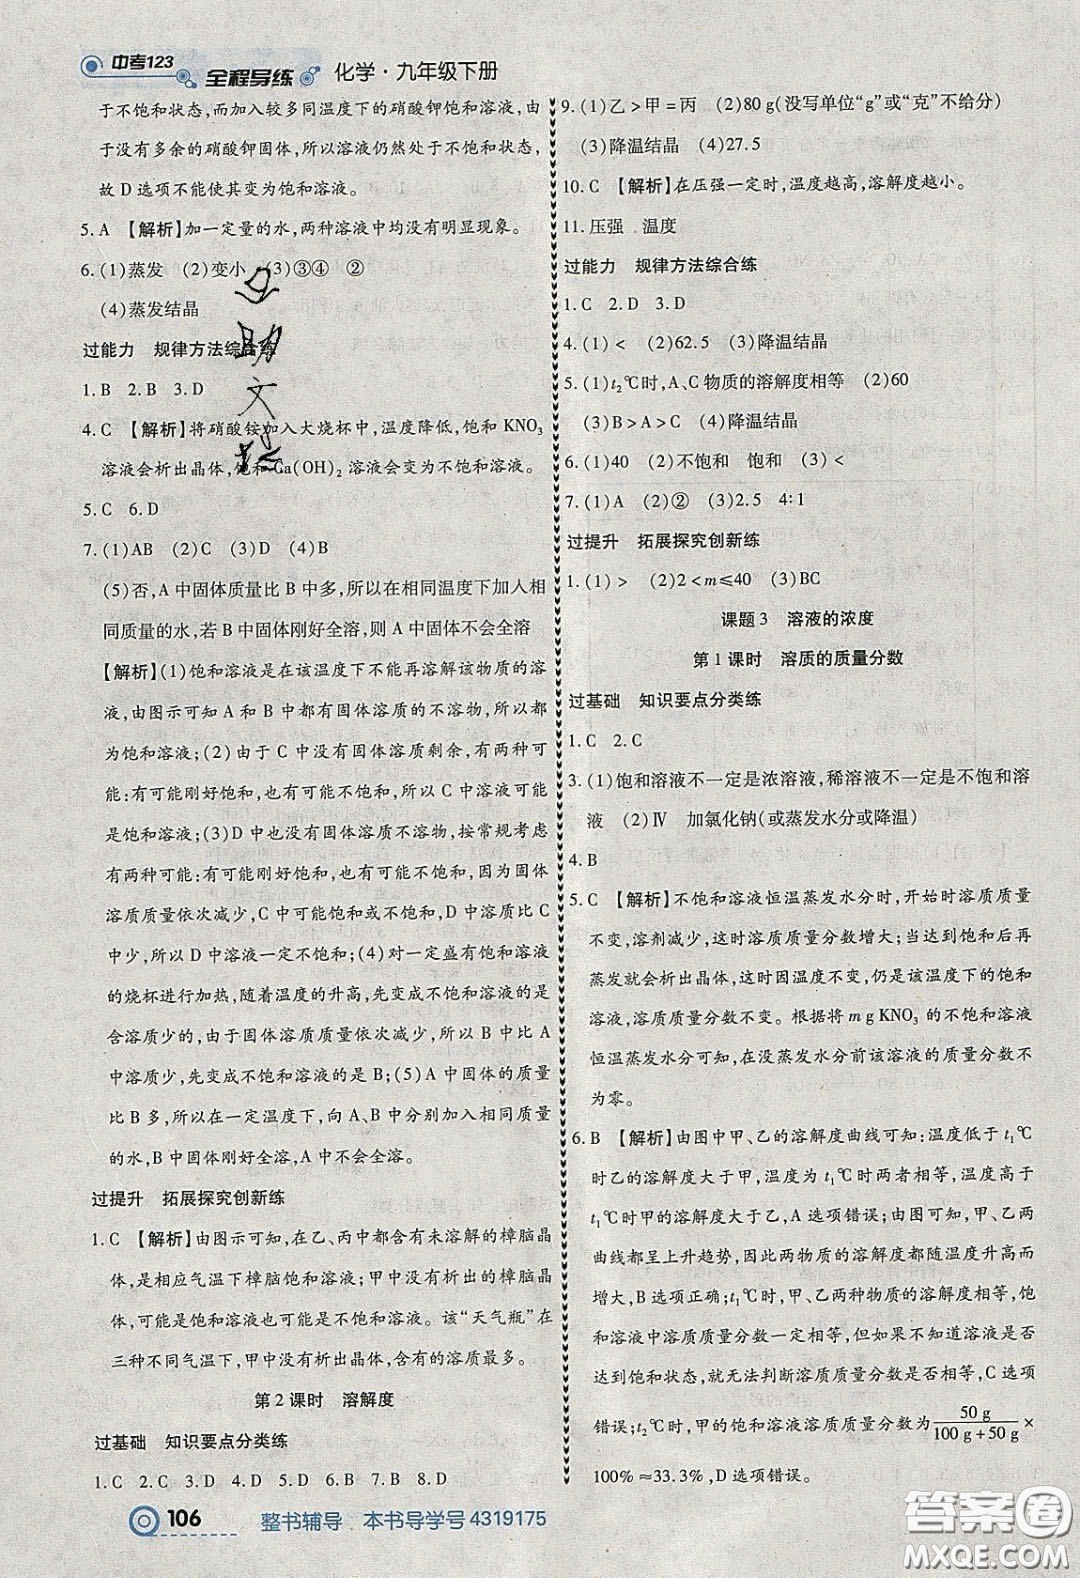 中考123 全程导练 化学·九年级下册
于不饱和状态,而加入较多同温度下的硝酸钾饱和溶液,由
于没有多余的硝酸钾固体,所以溶液仍然处于不饱和状态,
故D选项不能使其变为饱和溶液。
5. A 【解析】加一定量的水,两种溶液中均没有明显现象。
6. (1)蒸发 (2)变小 (3)③④ ②
(4)蒸发结晶
过能力 规律方法综合练
1. B 2. B 3. D
4. C 【解析】将硝酸铵加入大烧杯中,温度降低,饱和KNO₃
溶液会析出晶体,饱和Ca(OH)₂溶液会变为不饱和溶液。
5. C 6. D
7. (1)AB (2)C (3)D (4)B
(5)否,A中固体质量比B中多,所以在相同温度下加入相
同质量的水,若B中固体刚好全溶,则A中固体不会全溶
【解析】(1)饱和溶液是在该温度下不能再溶解该物质的溶
液,由图示可知A和B中都有固体溶质的不溶物,所以都
为饱和溶液;(2)由于C中没有固体溶质剩余,有两种可
能:有可能刚好饱和,也有可能不饱和,所以C中溶液可能
是饱和溶液;(3)D中也没有固体溶质不溶物,按常规考虑
有两种可能:有可能刚好饱和,也有可能不饱和,但因固体
溶质质量依次减少,C中可能饱和或不饱和,D中溶质比C
中少,所以D中溶液一定不饱和;(4)对一定盛有饱和溶液
的烧杯进行加热,随着温度的升高,先变成不饱和溶液的是
含溶质少的,由于固体溶质质量依次减少,所以B中比A
中溶质少,先变成不饱和溶液的是B;(5)A中固体的质量
比B多,所以在一定温度下,向A、B中分别加入相同质量
的水,B中固体刚好全溶,A中固体不会全溶。
过提升 拓展探究创新练
1. C 【解析】由图示可知,在乙、丙中都含有未溶解的樟脑晶
体,是相应气温下樟脑饱和溶液;甲中没有析出的樟脑晶
体,可能是饱和溶液也可能是不饱和溶液。该“天气瓶”在
三种不同气温下,甲中没有析出晶体,含有的溶质最多。
第2课时 溶解度
过基础 知识要点分类练
1. C 2. C 3. D 4. D 5. D 6. D 7. B 8. D
9. (1)乙>甲=丙 (2)80 g(没写单位“g”或“克”不给分)
(3)降温结晶 (4)27.5
10. C 【解析】在压强一定时,温度越高,溶解度越小。
11. 压强 温度
过能力 规律方法综合练
1. C 2. D 3. D
4. (1)< (2)62.5 (3)降温结晶
5. (1)t₂℃时,A、C物质的溶解度相等 (2)60
(3)B>A>C (4)降温结晶
6. (1)40 (2)不饱和 饱和 (3)<
7. (1)A (2)② (3)2.5 4∶1
过提升 拓展探究创新练
1. (1)> (2)2<m≤40 (3)BC
课题3 溶液的浓度
第1课时 溶质的质量分数
过基础 知识要点分类练
1. C 2. C
3. (1)饱和溶液不一定是浓溶液,稀溶液不一定是不饱和溶
液 (2)Ⅳ 加氯化钠(或蒸发水分或降温)
4. B
5. C 【解析】不饱和溶液恒温蒸发水分时,开始时溶质质量
不变,溶剂减少,这时溶质质量分数增大;当达到饱和后再
蒸发就会析出晶体,这时因温度不变,仍是该温度下的饱和
溶液,溶质质量分数不变。根据将m g KNO₃的不饱和溶液
恒温蒸发水分可知,在没蒸发水分前该溶液的质量分数不
为零。
6. B 【解析】由图中甲、乙的溶解度曲线可知:温度低于t₁℃
时乙的溶解度大于甲,温度为t₁℃时两者相等,温度高于
t₁℃时甲的溶解度大于乙,A选项错误;由图可知,甲、乙两
曲线都呈上升趋势,因此两物质的溶解度都随温度升高而
增大,B选项正确;t₁℃时,甲、乙两种物质的溶解度相等,饱
和溶液中溶质质量分数一定相等,但如果不知道溶液是否
达到饱和状态,就无法判断溶质质量分数是否相等,C选项
错误;t₂℃时,甲的饱和溶液溶质质量分数为50 g/(100 g+50 g)×
100%≈33.3%,D选项错误。
106 整书辅导 本书导学号4319175
答案圈
MXQE.COM